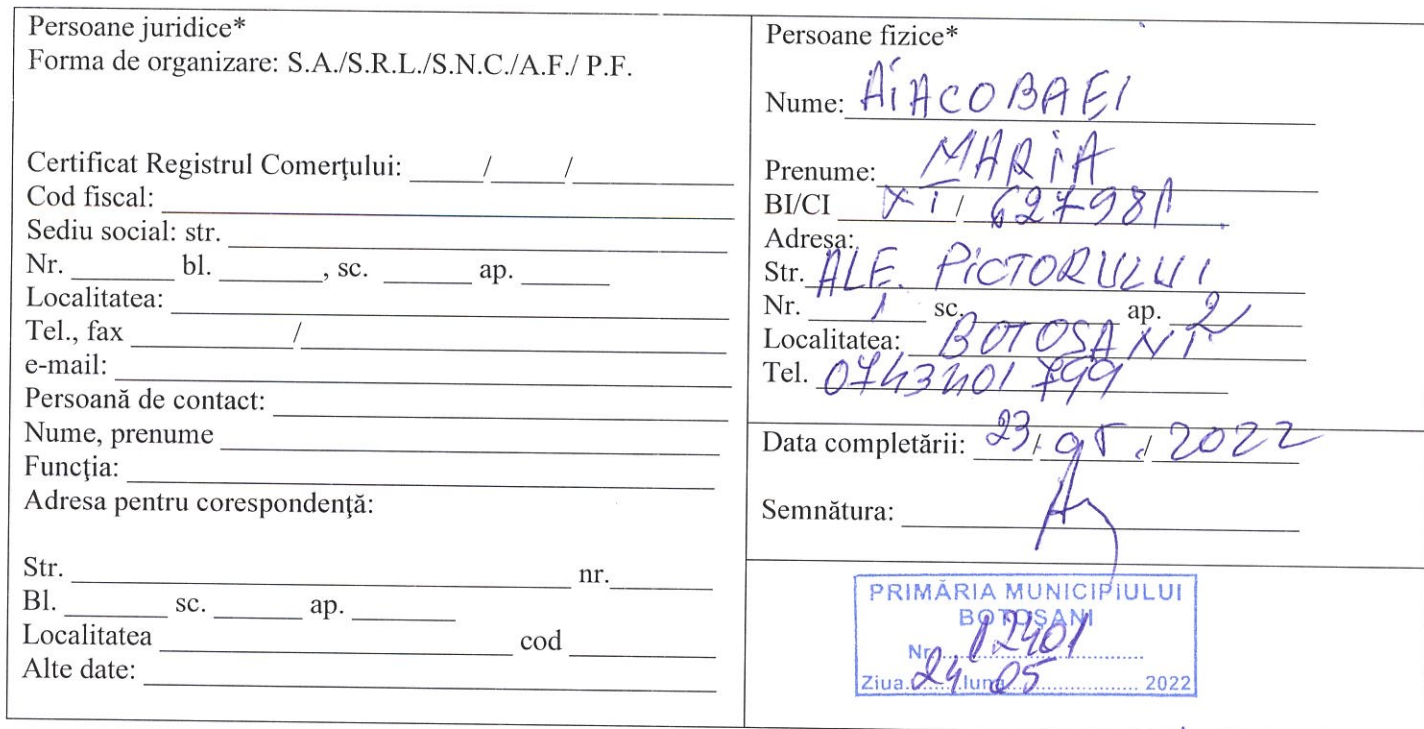 Persoane juridice*
Forma de organizare: S.A./S.R.L./S.N.C./A.F./ P.F.
Certificat Registrul Comerţului: _____/____/__________
Cod fiscal: ______________
Sediu social: str. ______________
Nr. _______ bl. _______, sc. ______ ap. ______
Localitatea: ______________
Tel., fax __________/______________
e-mail: ______________
Persoană de contact: ______________
Nume, prenume ______________
Funcţia: ______________
Adresa pentru corespondenţă:
Str. ______________ nr. ______
Bl. _______ sc. ______ ap. _______
Localitatea ______________ cod ________
Alte date: ______________
Persoane fizice*
Nume: AiACOBAEI
Prenume: MARiA
BI/CI XT / 627981
Adresa:
Str. ALE. PiCTORULUI
Nr. 1 sc. ______ ap. 2
Localitatea: BOTOSANI
Tel. 0743401799
Data completării: 23/ 05 / 2022
Semnătura:
PRIMĂRIA MUNICIPIULUI
BOTOŞANI
Nr. 12401
Ziua 24 luna 05 2022